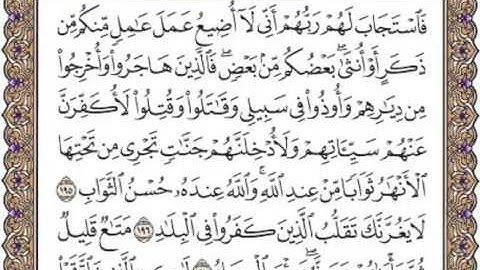 فَاسْتَجَابَ لَهُمْ رَبُّهُمْ أَنِّي لَا أُضِيعُ عَمَلَ عَامِلٍ مِّنكُم مِّن
ذَكَرٍ أَوْ أُنثَىٰ ۖ بَعْضُكُم مِّن بَعْضٍ ۖ فَالَّذِينَ هَاجَرُوا وَأُخْرِجُوا
مِن دِيَارِهِمْ وَأُوذُوا فِي سَبِيلِي وَقَاتَلُوا وَقُتِلُوا لَأُكَفِّرَنَّ
عَنْهُمْ سَيِّئَاتِهِمْ وَلَأُدْخِلَنَّهُمْ جَنَّاتٍ تَجْرِي مِن تَحْتِهَا
الْأَنْهَارُ ثَوَابًا مِّنْ عِندِ اللَّهِ ۗ وَاللَّهُ عِندَهُ حُسْنُ الثَّوَابِ ١٩٥
لَا يَغُرَّنَّكَ تَقَلُّبُ الَّذِينَ كَفَرُوا فِي الْبِلَادِ ١٩٦ مَتَاعٌ قَلِيلٌ